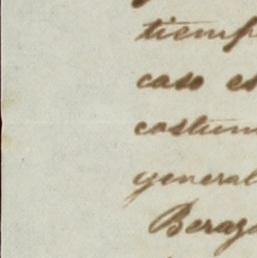 tiemp
caso es
costum
general
Beraza